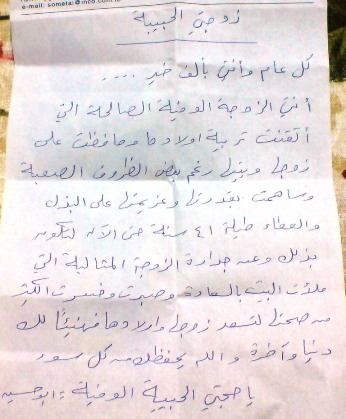 e-mail: sometal@inco.com.jo
زوجتي الحبيبة
كل عام وأنتي بألف خير ....
أنتي الزوجة الوفية الصالحة التي
أتقنت تربية اولادها وحافظت على
زوجها وبيتها رغم بعض الظروف الصعبة
وساهمت بقدرتها وعزيمتها على البذل
والعطاء طيلة ٤١ سنة حتى الآن لتكون
بذلك وعن جدارة الزوجة المثالية التي
ملأت البيت بالسعادة وصبرت وخسرت الكثير
من صحتها لتسعد زوجها واولادها فهنيئًا لك
دنيا وآخرة والله يحفظك من كل سوء
يا حجتي الحبيبة الوفية : ابو حسين